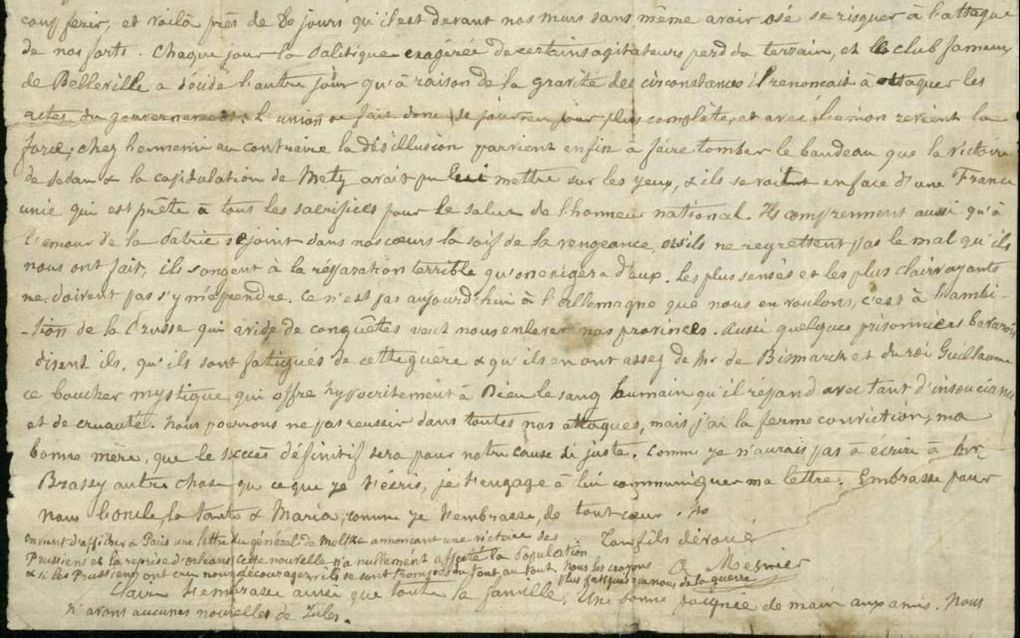 conférir, et voilà près de 80 jours qu'il est devant nos murs sans même avoir osé se risquer à l'attaque
de nos forts. Chaque jour la politique exagérée de certains agitateurs perd du terrain, et le club fameux
de Belleville a décidé l'autre jour qu'à raison de la gravité des circonstances il renonçait à attaquer les
actes du gouvernement. L'union se fait donc de jour en jour plus complète, et avec l'union revient la
force; chez l'ennemi au contraire la désillusion parvient enfin à faire tomber le bandeau que la victoire
de Sedan & la capitulation de Metz avait pu lui mettre sur les yeux, & ils se voient en face d'une France
unie qui est prête à tous les sacrifices pour le salut de l'honneur national. Ils comprennent aussi qu'à
l'amour de la Patrie se joint dans nos cœurs la soif de la vengeance, et s'ils ne regrettent pas le mal qu'ils
nous ont fait, ils songent à la réparation terrible qu'on exigera d'eux. Les plus sensés et les plus clairvoyants
ne doivent pas s'y méprendre. Ce n'est pas aujourd'hui à l'Allemagne que nous en voulons, c'est à l'ambi-
-tion de la Prusse qui avide de conquêtes veut nous enlever nos provinces. Aussi quelques prisonniers bavarois
disent ils, qu'ils sont fatigués de cette guère & qu'ils en ont assez de Mr de Bismarck et du roi Guillaume
ce boucher mystique qui offre hypocritement à Dieu le sang humain qu'il répand avec tant d'insouciance
et de cruauté. Nous pourrons ne pas réussir dans toutes nos attaques, mais j'ai la ferme conviction, ma
bonne mère, que le succès définitif sera pour notre cause si juste. Comme je n'aurais pas à écrire à Mr
Brassy autre chose que ce que je t'écris, je t'engage à lui communiquer ma lettre. Embrasse pour
nous l'oncle, la tante & Maria, comme je t'embrasse, de tout cœur.
Ton fils dévoué
Mesnier
On vient d'afficher à Paris une lettre du général de Moltke annonçant une victoire des
Prussiens et la reprise d'Orléans cette nouvelle n'a nullement affecté la population
& si les Prussiens ont cru nous décourager ils se sont trompés du tout au tout. Nous les croyons
plus fatigués que nous de la guerre
Claire t'embrasse ainsi que toute la famille. Une bonne poignée de main aux amis. Nous
n'avons aucunes nouvelles de Jules.